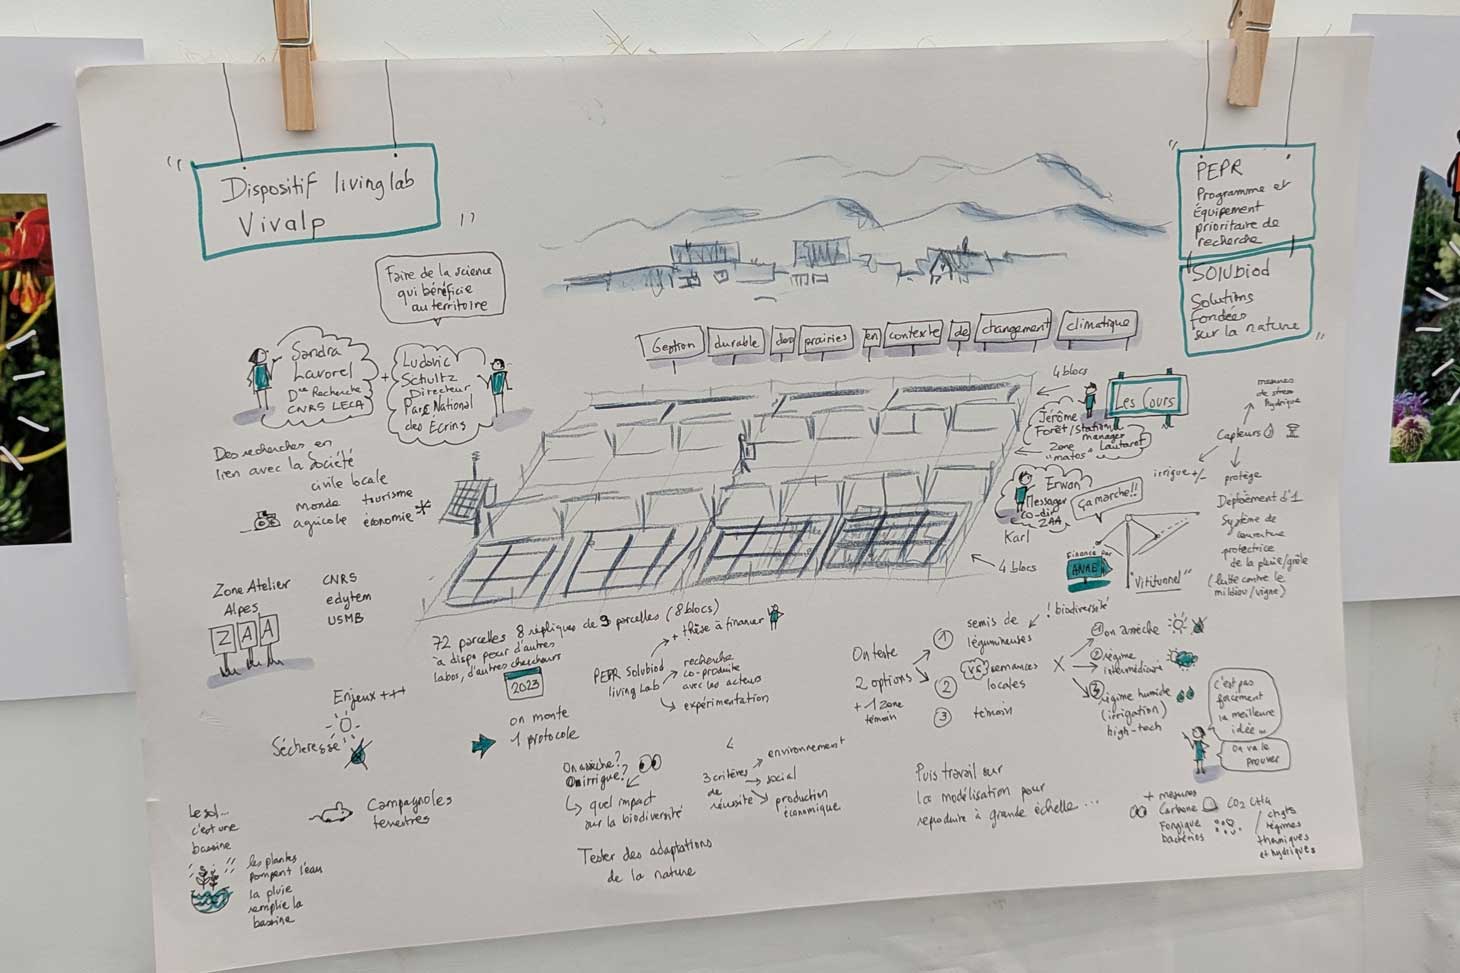 Dispositif living lab
Vivalp
PEPR
Programme et
Équipement
prioritaire de
recherche
SOLUbiod
Solutions
fondées
sur la nature
Faire de la science
qui bénéficie
au territoire
Sandra
Lavorel
Dre Recherche
CNRS LECA
+
Ludovic
Schultz
Directeur
Parc National
des Ecrins
Gestion durable des prairies en contexte de changement climatique
Des recherches en
lien avec la société
civile locale
monde tourisme
agricole économie
4 blocs
Les Cours
Jérôme
Forêt/Station
manager
Zone Lautaret
"matos"
Erwan
Messager
co-dir
ZAA
Karl
ça marche!!
Financé par
4 blocs
"Vititunnel"
mesures
de stress
hydrique
Capteurs
irrigue +/-
protège
Déploiement d'1
Système de
couverture
protectrice
de la pluie/grêle
(lutte contre le
mildiou/vigne)
Zone Atelier
Alpes
ZAA
CNRS
edytem
USMB
72 parcelles 8 répliques de 9 parcelles (8 blocs)
à dispo pour d'autres
labos, d'autres chercheurs
2023
on monte
1 protocole
Enjeux +++
Sécheresse
Le sol...
c'est une
bassine
les plantes
pompent l'eau
la pluie
remplie la
bassine
Campagnoles
terrestres
PEPR Solubiod
living Lab
+ thèse à financer
recherche
co-produite
avec les acteurs
expérimentation
On assèche?
On irrigue?
quel impact
sur la biodiversité
Tester des adaptations
de la nature
3 critères
de
réussite
environnement
social
production
économique
On teste
2 options
+ 1 zone
témoin
1 semis de
légumineuses
! biodiversité
vs
2 semences
locales
3 témoin
X
1 on assèche
2 régime
intermédiaire
3 régime humide
(irrigation)
high-tech
c'est pas
forcément
la meilleure
idée...
On va le
prouver
Puis travail sur
la modélisation pour
reproduire à grande échelle...
+ mesures
Carbone CO2 CH4
Fongique
bactéries
/ chgts
régimes
thermiques
et hydriques